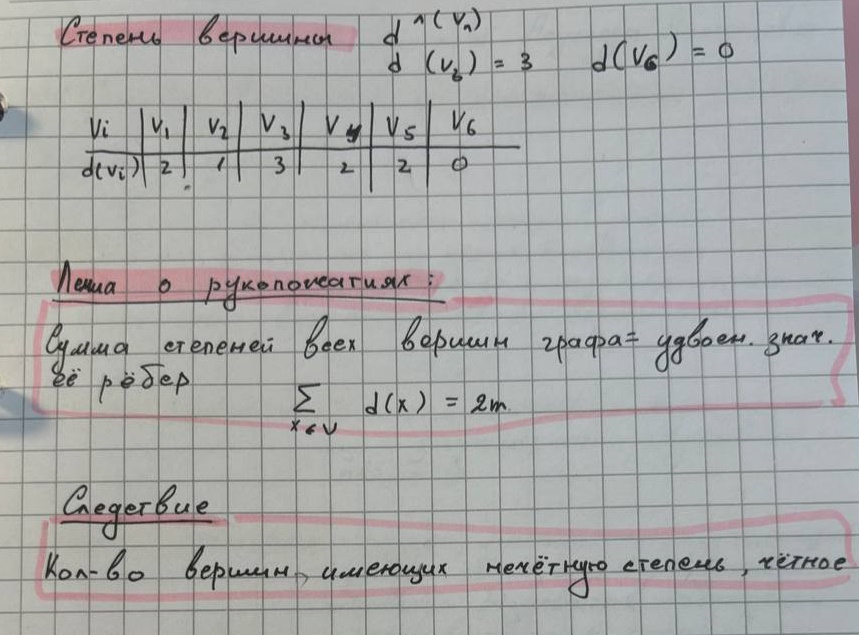 Степень вершины d^(Vn)
d (V3) = 3 d(V6) = 0
Vi V1 V2 V3 V4 V5 V6
d(Vi) 2 1 3 2 2 0
Лемма о рукопожатиях:
Сумма степеней всех вершин графа = удвоен. знач.
её рёбер
∑ d(x) = 2m
x∈V
Следствие
Кол-во вершин, имеющих нечётную степень, чётное